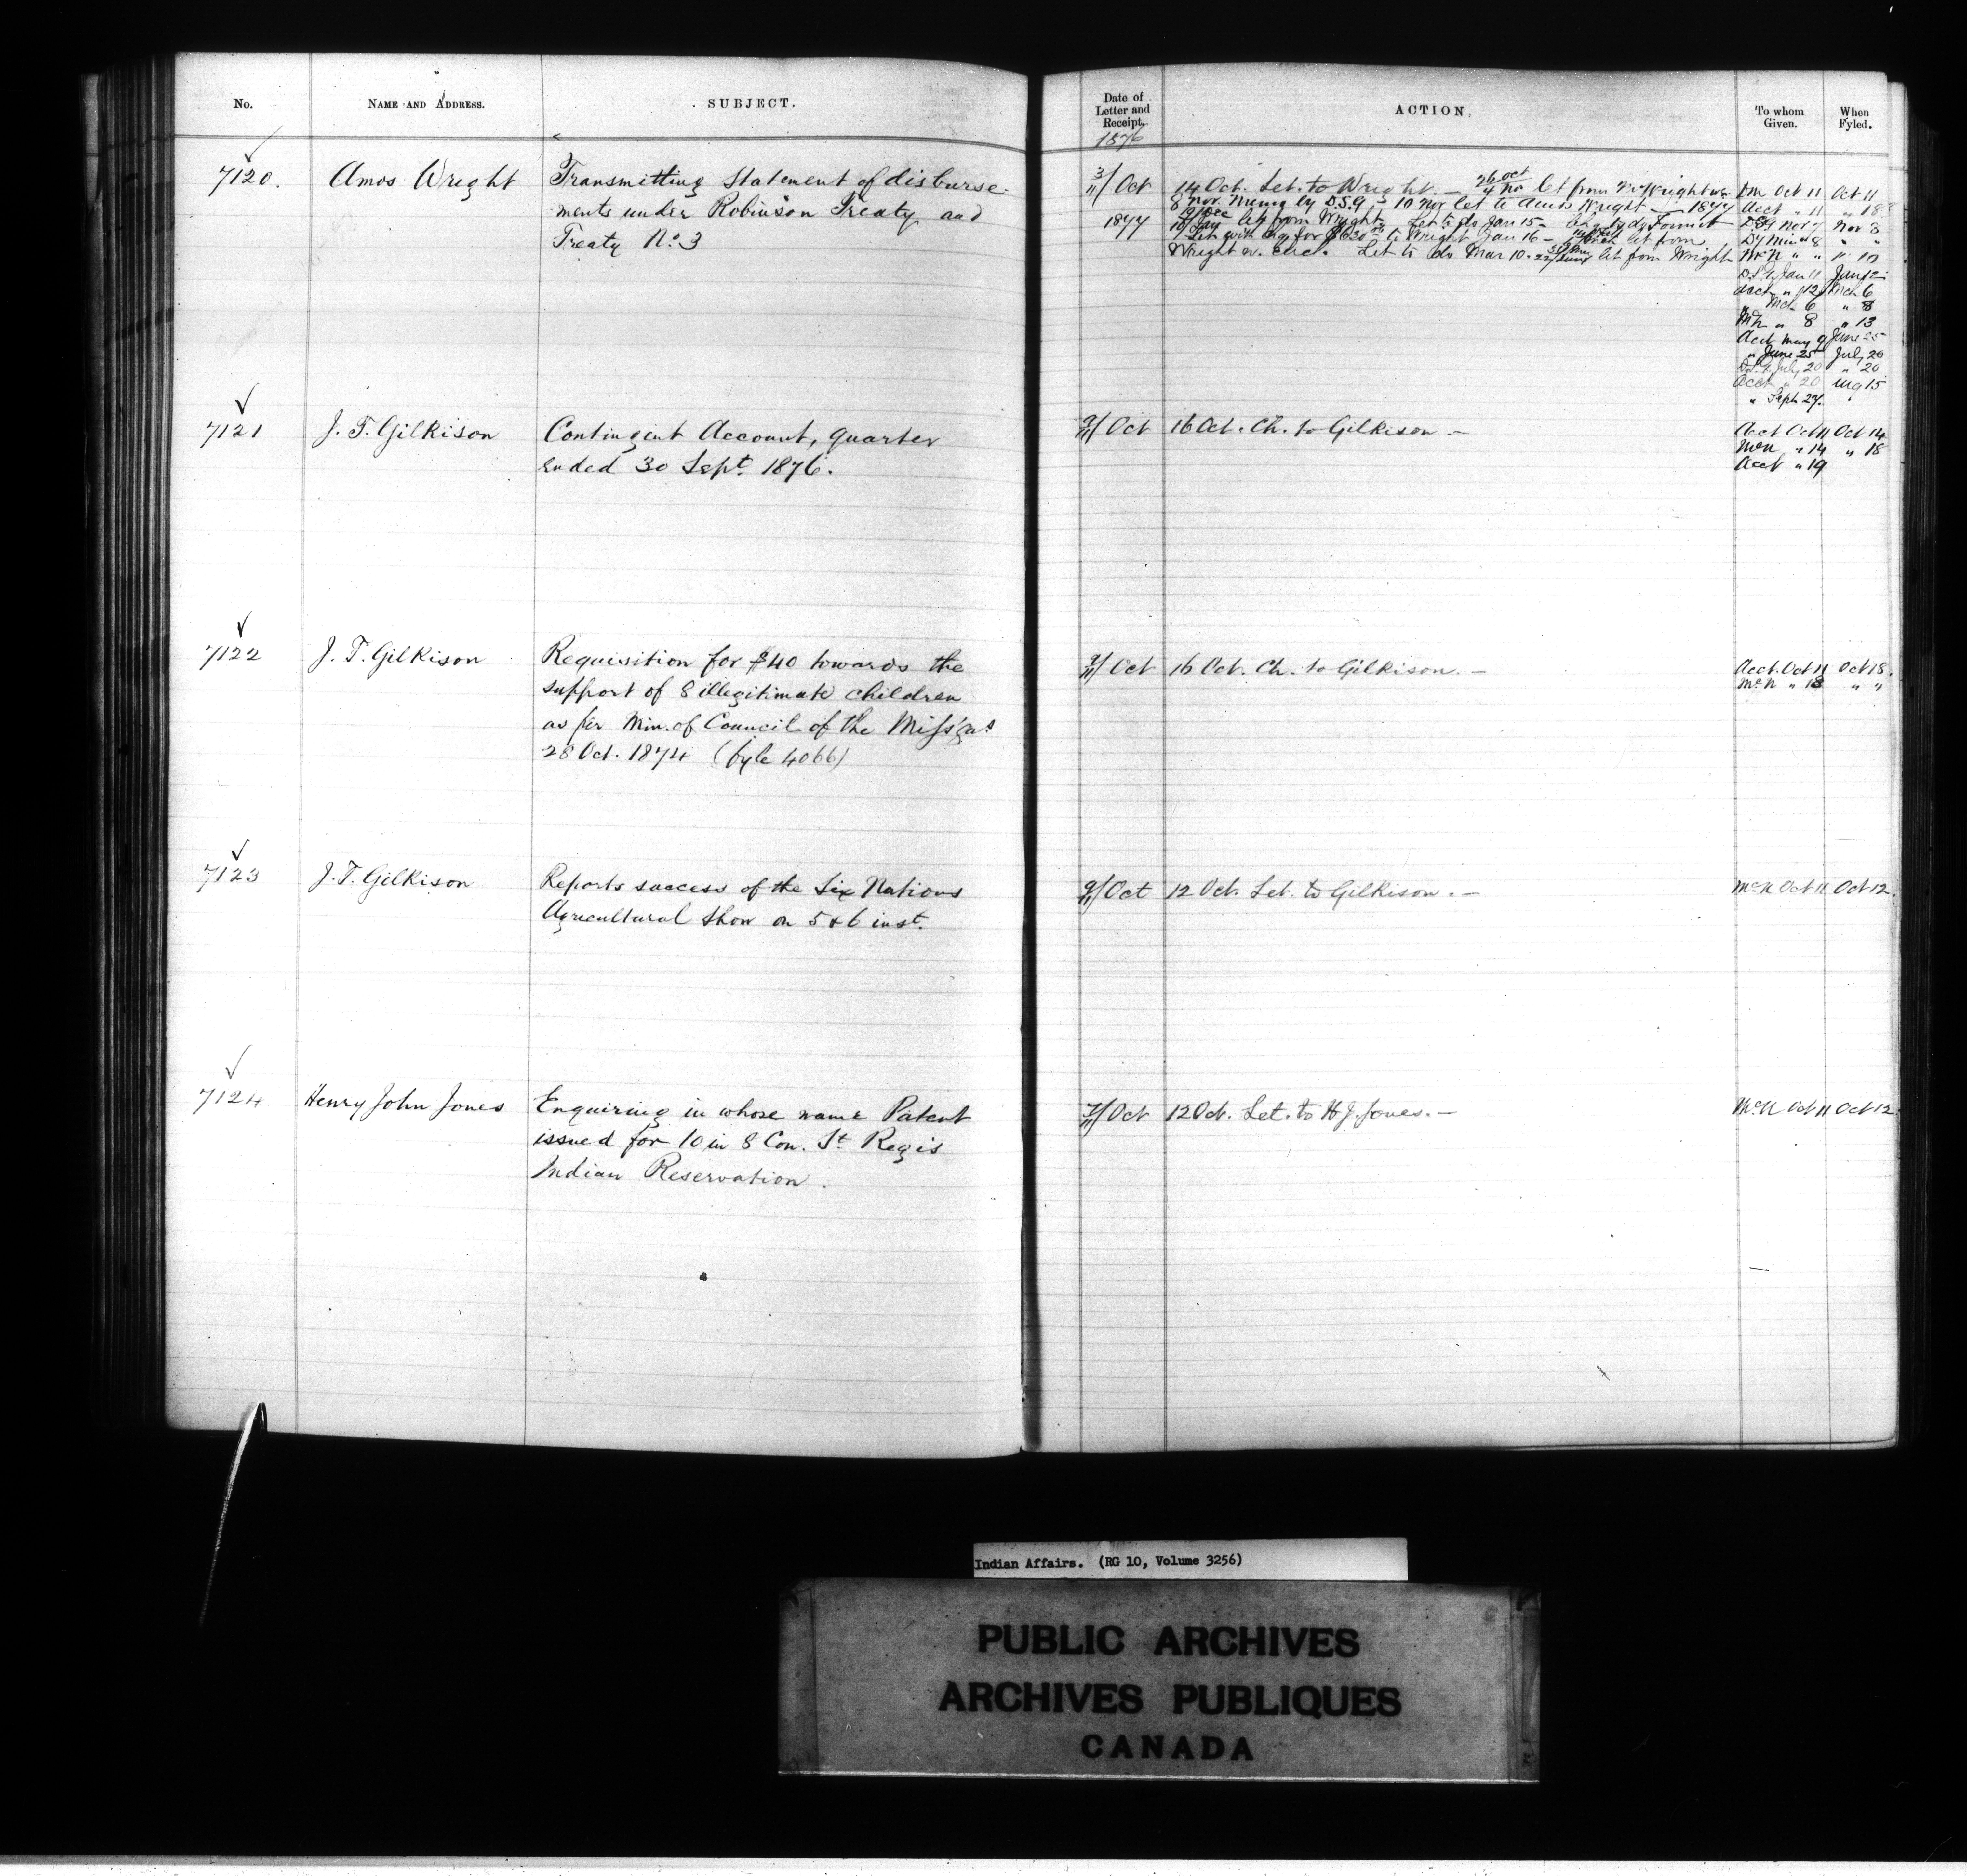 No.
NAME AND ADDRESS.
SUBJECT.
Date of
Letter and
Receipt.
ACTION.
To whom
Given.
When
Fyled.
1876
7120.
Amos Wright
Transmitting Statement of disburse-
ments under Robinson Treaty and
Treaty No. 3
3/11 Oct
1877
14 Oct. Let. to Wright. — 26 Oct / 4 No let from Wright
8 Nov. Memo by D.S.G. - 10 Nov let to Amos Wright — 1877
let from Wright Let to do Jan 15 -
Let with chq for to Wright Jan 16 - let from
Wright w. encl. Let to do. Mar 10. let from Wright
Oct 11 Oct 11
Acct " 11 " 18
DSG Nov 7 Nov 8
Dy Min " 8 " "
McN " " " 10
D.S.G. Jan 11 Jan 12
Acct " 12 Mch 6
" Mch 6 " 8
McN " 8 " 13
Acct May 9 June 25
" June 25 July 20
D.S.G. July 20 " 20
Acct " 20 Aug 15
" Sept 27.
7121
J. T. Gilkison
Contingent Account, quarter
ended 30 Sept. 1876.
9/11 Oct
16 Oct. Ch. to Gilkison. —
Acct Oct 11 Oct 14
McN " 14 " 18
Acct " 19
7122
J. T. Gilkison
Requisition for $40 towards the
support of 8 illegitimate children
as per Min. of Council of the Miss'gas
28 Oct. 1874 (fyle 4066)
9/11 Oct
16 Oct. Ch. to Gilkison. —
Acct. Oct 11 Oct 18.
McN " 18 " "
7123
J. T. Gilkison
Reports success of the Six Nations
Agricultural Show on 5 & 6 inst.
9/11 Oct
12 Oct. Let. to Gilkison. —
McN Oct 11 Oct 12.
7124
Henry John Jones
Enquiring in whose name Patent
issued for 10 in 8 Con. St Regis
Indian Reservation.
7/11 Oct
12 Oct. Let. to H J. Jones. —
McN Oct 11 Oct 12.
Indian Affairs. (RG 10, Volume 3256)
PUBLIC ARCHIVES
ARCHIVES PUBLIQUES
CANADA